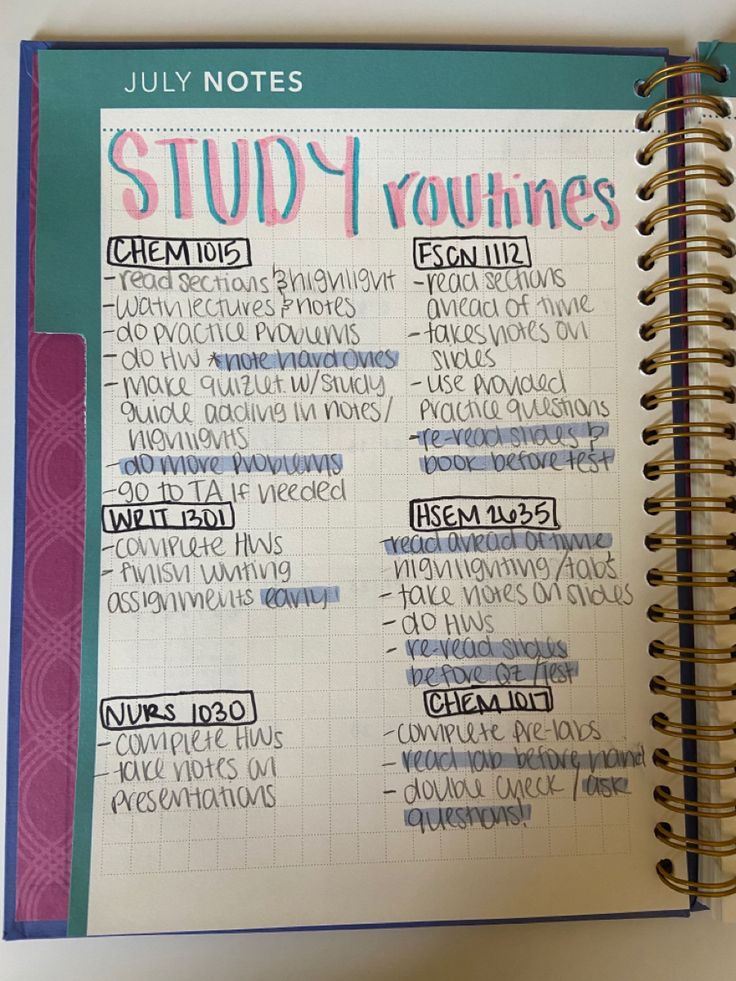 JULY NOTES
STUDY routines
CHEM 1015
-read sections & highlight
-watch lectures & notes
-do practice problems
-do HW *note hard ones
-make quizlet w/study
guide adding in notes/
highlights
-do more problems
-go to TA if needed
WRIT 1301
-complete HWs
-finish writing
assignments early
NURS 1030
-complete HWs
-take notes on
presentations
FSCN 1112
-read sections
ahead of time
-takes notes on
slides
-use provided
practice questions
-re-read slides &
book before test
HSEM 2635
-read ahead of time
highlighting/tabs
-take notes on slides
-do HWs
-re-read slides
before QZ/Test
CHEM 1017
-complete pre-labs
-read lab before hand
-double check/ask
questions!